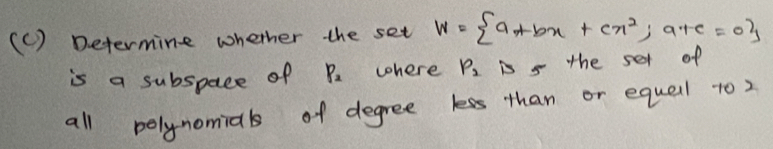 (C) Determine whether the set W = {a+bx + cx²; a+c = 0},
is a subspace of P₂ where P₂ is the set of
all polynomials of degree less than or equal to 2